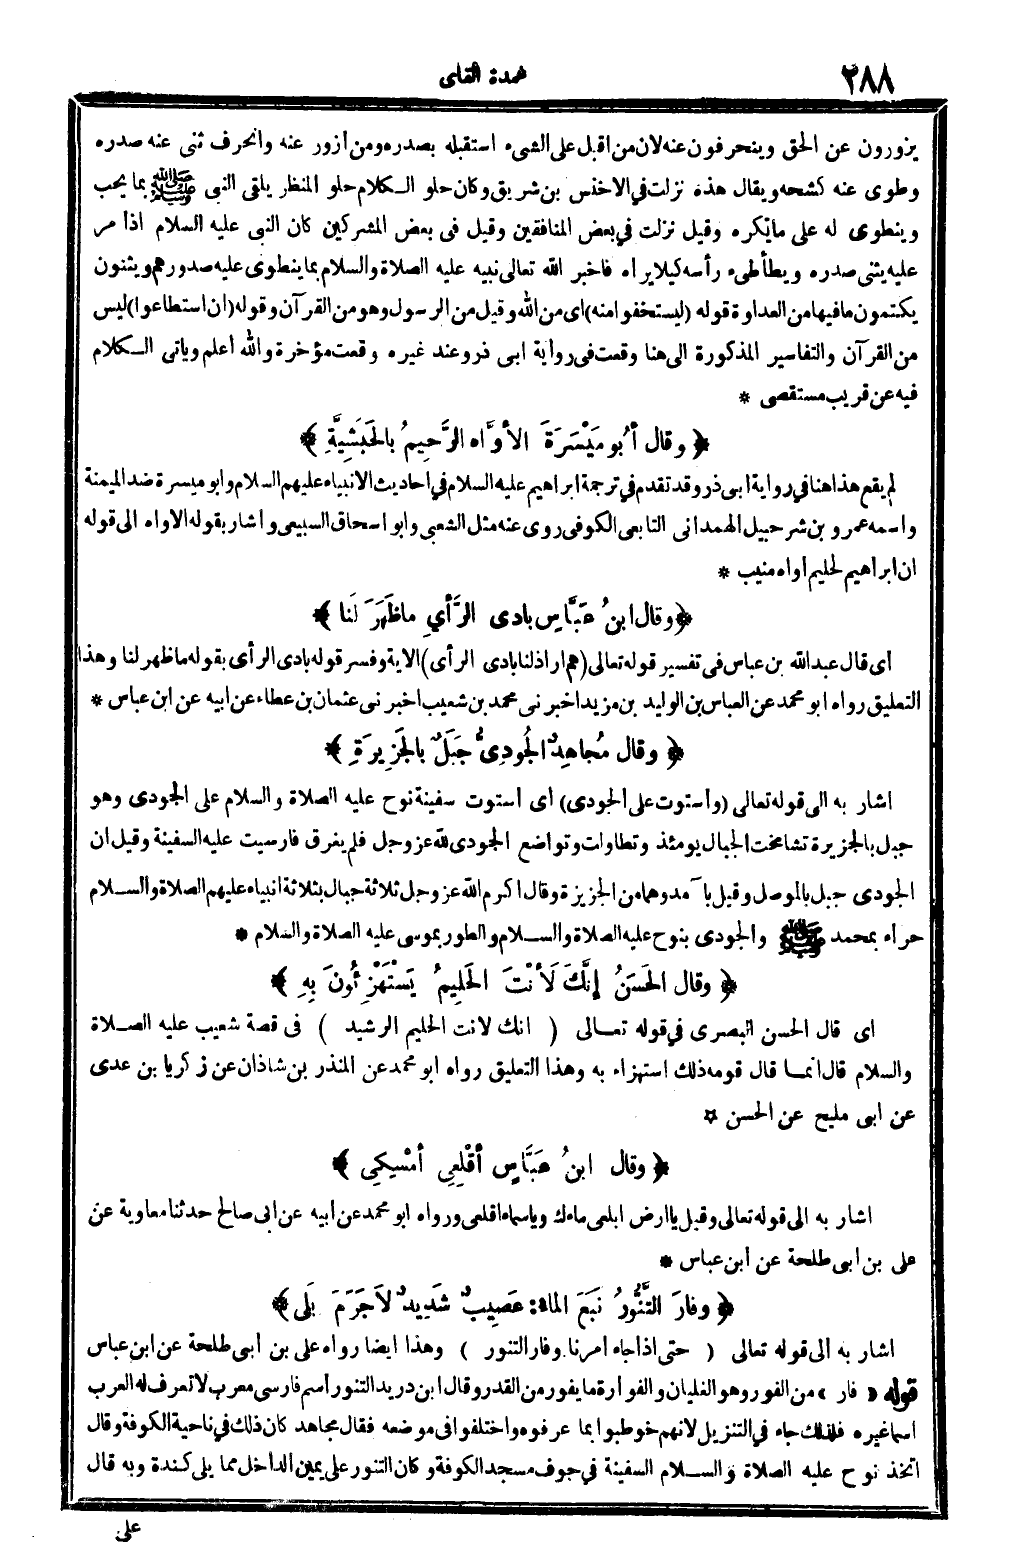 ٢٨٨
عمدة القاري
يزورون عن الحق وينحرفون عنه لان من اقبل على الشيء استقبله بصدره ومن أزور عنه وانحرف ثنى عنه صدره
وطوى عنه كشحه ويقال هذه نزلت في الاخنس بن شريق وكان حلو الكلام حلو المنظر يلقى النبي ﷺ بما يحب
وينطوى له على ما يكره وقيل نزلت في بعض المنافقين وقيل فى بعض المشركين كان النبى عليه السلام اذا مر
عليه يثنى صدره ويطأطىء رأسه كيلا يراه فاخبر الله تعالى نبيه عليه الصلاة والسلام بما ينطوى عليه صدورهم ويثنون
يكتمون ما فيها من العداوة قوله (ليستخفوا منه) اى من الله وقيل من الرسول وهو من القرآن وقوله (ان استطاعوا) ليس
من القرآن والتفاسير المذكورة الى هنا وقعت فى رواية ابى ذر وعند غيره وقعت مؤخرة والله أعلم وياتى الكلام
فيه عن قريب مستقصى *
﴿ وقال أبُو مَيْسَرَةَ الأوَّاه الرَّحِيمُ بالحَبَشِيَّةِ ﴾
لم يقع هذا هنا في رواية ابى ذر وقد تقدم في ترجمة ابراهيم عليه السلام في احاديث الانبياء عليهم السلام وابو ميسرة ضد الميمنة
واسمه عمرو بن شرحبيل الهمدانى التابعى الكوفى روى عنه مثل الشعبي وابو اسحاق السبيعى واشار بقوله الاواه الى قوله
ان ابراهيم لحليم اواه منيب *
﴿ وقال ابنُ عَبَّاس بادى الرَّأيِ ماظَهَرَ لَنا ﴾
أى قال عبد الله بن عباس فى تفسير قوله تعالى (هم اراذلنا بادى الرأى) الاية وفسر قوله بادى الرأى بقوله ما ظهر لنا وهذا
التعليق رواه ابو محمد عن العباس بن الوليد بن مزيد اخبرنى محمد بن شعيب اخبرنى عثمان بن عطاء عن ابيه عن ابن عباس *
﴿ وقال مُجاهِدٌ الجُودِيُّ جَبَلٌ بالجَزِيرَةِ ﴾
اشار به الى قوله تعالى (وأستوت على الجودى) أى أستوت سفينة نوح عليه الصلاة والسلام على الجودى وهو
جبل بالجزيرة تشامخت الجبال يومئذ وتطاولت وتواضع الجودى لله عز وجل فلم يغرق فارسيت عليه السفينة وقيل ان
الجودى جبل بالموصل وقيل بآمد وهما من الجزيرة وقال اكرم الله عز وجل ثلاثة جبال بثلاثة انبياء عليهم الصلاة والسلام
حراء بمحمد ﷺ والجودى بنوح عليه الصلاة والسلام والطور بموسى عليه الصلاة والسلام *
﴿ وقال الحَسَنُ إنَّكَ لَأنْتَ الحَلِيمُ يَسْتَهْزِئُونَ بِهِ ﴾
اى قال الحسن البصرى في قوله تعالى ( انك لانت الحليم الرشيد ) فى قصة شعيب عليه الصلاة
والسلام قال انما قال قومه ذلك استهزاء به وهذا التعليق رواه ابو محمد عن المنذر بن شاذان عن زكريا بن عدى
عن ابى مليح عن الحسن *
﴿ وقال ابنُ عَبَّاسٍ أقْلِعِى أمْسِكِى ﴾
اشار به الى قوله تعالى وقيل ياارض ابلعى ماءك وياسماء اقلعى ورواه ابو محمد عن ابيه عن ابى صالح حدثنا معاوية عن
على بن ابى طلحة عن ابن عباس *
﴿ وفارَ التَّنُّورُ نَبَعَ الماء: عَصِيبٌ شَدِيدٌ لاَجَرَمَ بَلَى ﴾
اشار به الى قوله تعالى ( حتى اذا جاء أمرنا وفار التنور ) وهذا ايضا رواه على بن أبى طلحة عن ابن عباس
قوله « فار » من الفور وهو الغليان والفوارة ما يفور من القدر وقال ابن دريد التنور أسم فارسى معرب لا تعرف له العرب
اسما غيره فلذلك جاء في التنزيل لانهم خوطبوا بما عرفوه واختلفوا فى موضعه فقال مجاهد كان ذلك في ناحية الكوفة وقال
اتخذ نوح عليه الصلاة والسلام السفينة في جوف مسجد الكوفة وكان التنور على يمين الداخل مما يلى كندة وبه قال
على